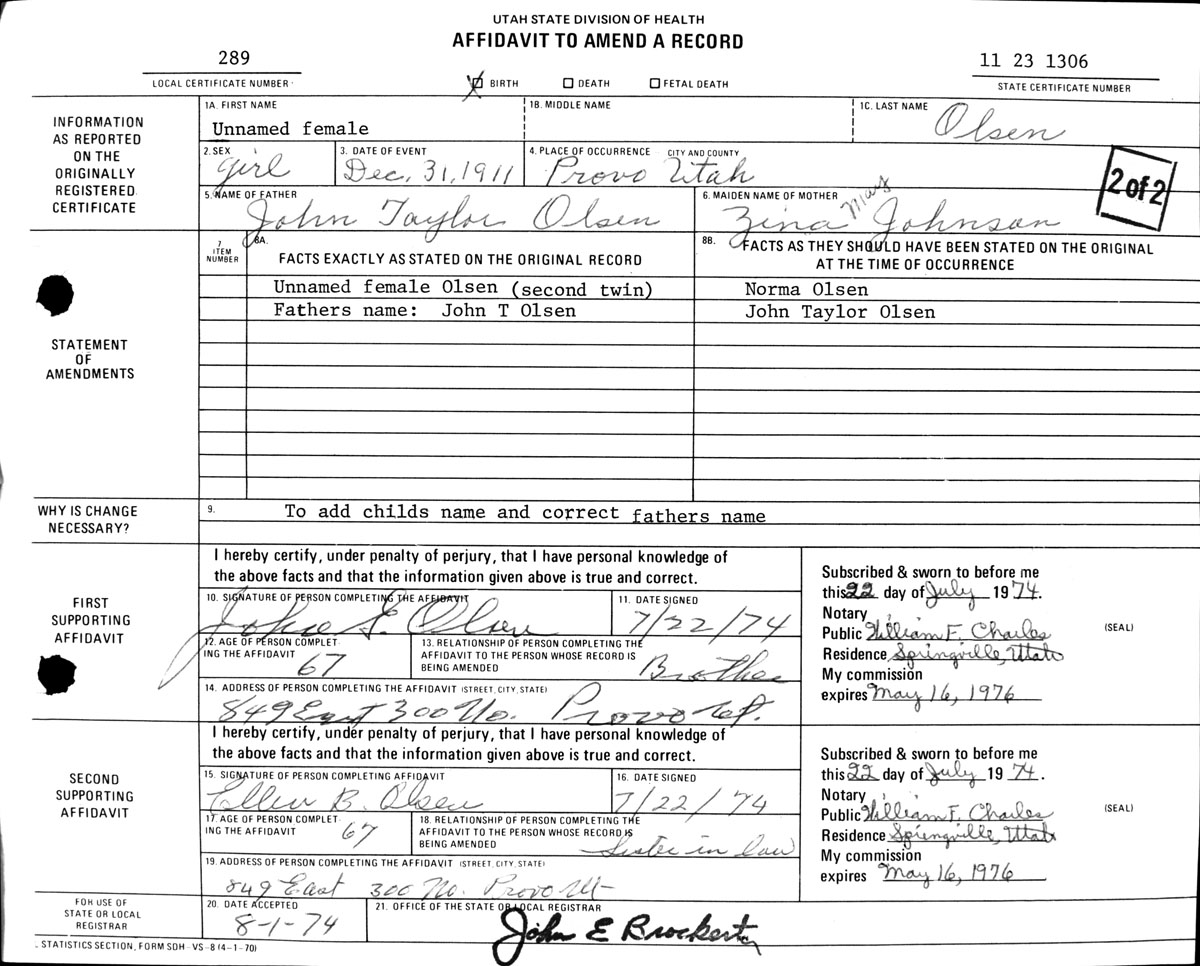 UTAH STATE DIVISION OF HEALTH
AFFIDAVIT TO AMEND A RECORD
289
LOCAL CERTIFICATE NUMBER
BIRTH DEATH FETAL DEATH
11 23 1306
STATE CERTIFICATE NUMBER
INFORMATION
AS REPORTED
ON THE
ORIGINALLY
REGISTERED
CERTIFICATE
1A. FIRST NAME
Unnamed female
1B. MIDDLE NAME
1C. LAST NAME
Olsen
2. SEX
girl
3. DATE OF EVENT
Dec. 31, 1911
4. PLACE OF OCCURRENCE CITY AND COUNTY
Provo Utah
2 of 2
5. NAME OF FATHER
John Taylor Olsen
6. MAIDEN NAME OF MOTHER
Zina Mary Johnson
STATEMENT
OF
AMENDMENTS
7
ITEM
NUMBER
8A.
FACTS EXACTLY AS STATED ON THE ORIGINAL RECORD
8B. FACTS AS THEY SHOULD HAVE BEEN STATED ON THE ORIGINAL
AT THE TIME OF OCCURRENCE
Unnamed female Olsen (second twin) Norma Olsen
Fathers name: John T Olsen John Taylor Olsen
WHY IS CHANGE
NECESSARY?
9. To add childs name and correct fathers name
FIRST
SUPPORTING
AFFIDAVIT
I hereby certify, under penalty of perjury, that I have personal knowledge of
the above facts and that the information given above is true and correct.
10. SIGNATURE OF PERSON COMPLETING THE AFFIDAVIT
Olsen
11. DATE SIGNED
7/22/74
12. AGE OF PERSON COMPLET-
ING THE AFFIDAVIT
67
13. RELATIONSHIP OF PERSON COMPLETING THE
AFFIDAVIT TO THE PERSON WHOSE RECORD IS
BEING AMENDED
Brother
14. ADDRESS OF PERSON COMPLETING THE AFFIDAVIT (STREET, CITY, STATE)
849 East 300 No. Provo Ut.
Subscribed & sworn to before me
this 22 day of July 1974.
Notary
Public William F. Charles
Residence Springville, Utah
My commission
expires May 16, 1976
(SEAL)
SECOND
SUPPORTING
AFFIDAVIT
I hereby certify, under penalty of perjury, that I have personal knowledge of
the above facts and that the information given above is true and correct.
15. SIGNATURE OF PERSON COMPLETING AFFIDAVIT
Ellen B. Olsen
16. DATE SIGNED
7/22/74
17. AGE OF PERSON COMPLET-
ING THE AFFIDAVIT
67
18. RELATIONSHIP OF PERSON COMPLETING THE
AFFIDAVIT TO THE PERSON WHOSE RECORD IS
BEING AMENDED
Sister in law
19. ADDRESS OF PERSON COMPLETING THE AFFIDAVIT (STREET, CITY, STATE)
849 East 300 No. Provo Ut
Subscribed & sworn to before me
this 22 day of July 1974.
Notary
Public William F. Charles
Residence Springville, Utah
My commission
expires May 16, 1976
(SEAL)
FOR USE OF
STATE OR LOCAL
REGISTRAR
20. DATE ACCEPTED
8-1-74
21. OFFICE OF THE STATE OR LOCAL REGISTRAR
John E Brockert
STATISTICS SECTION, FORM SDH-VS-8 (4-1-70)